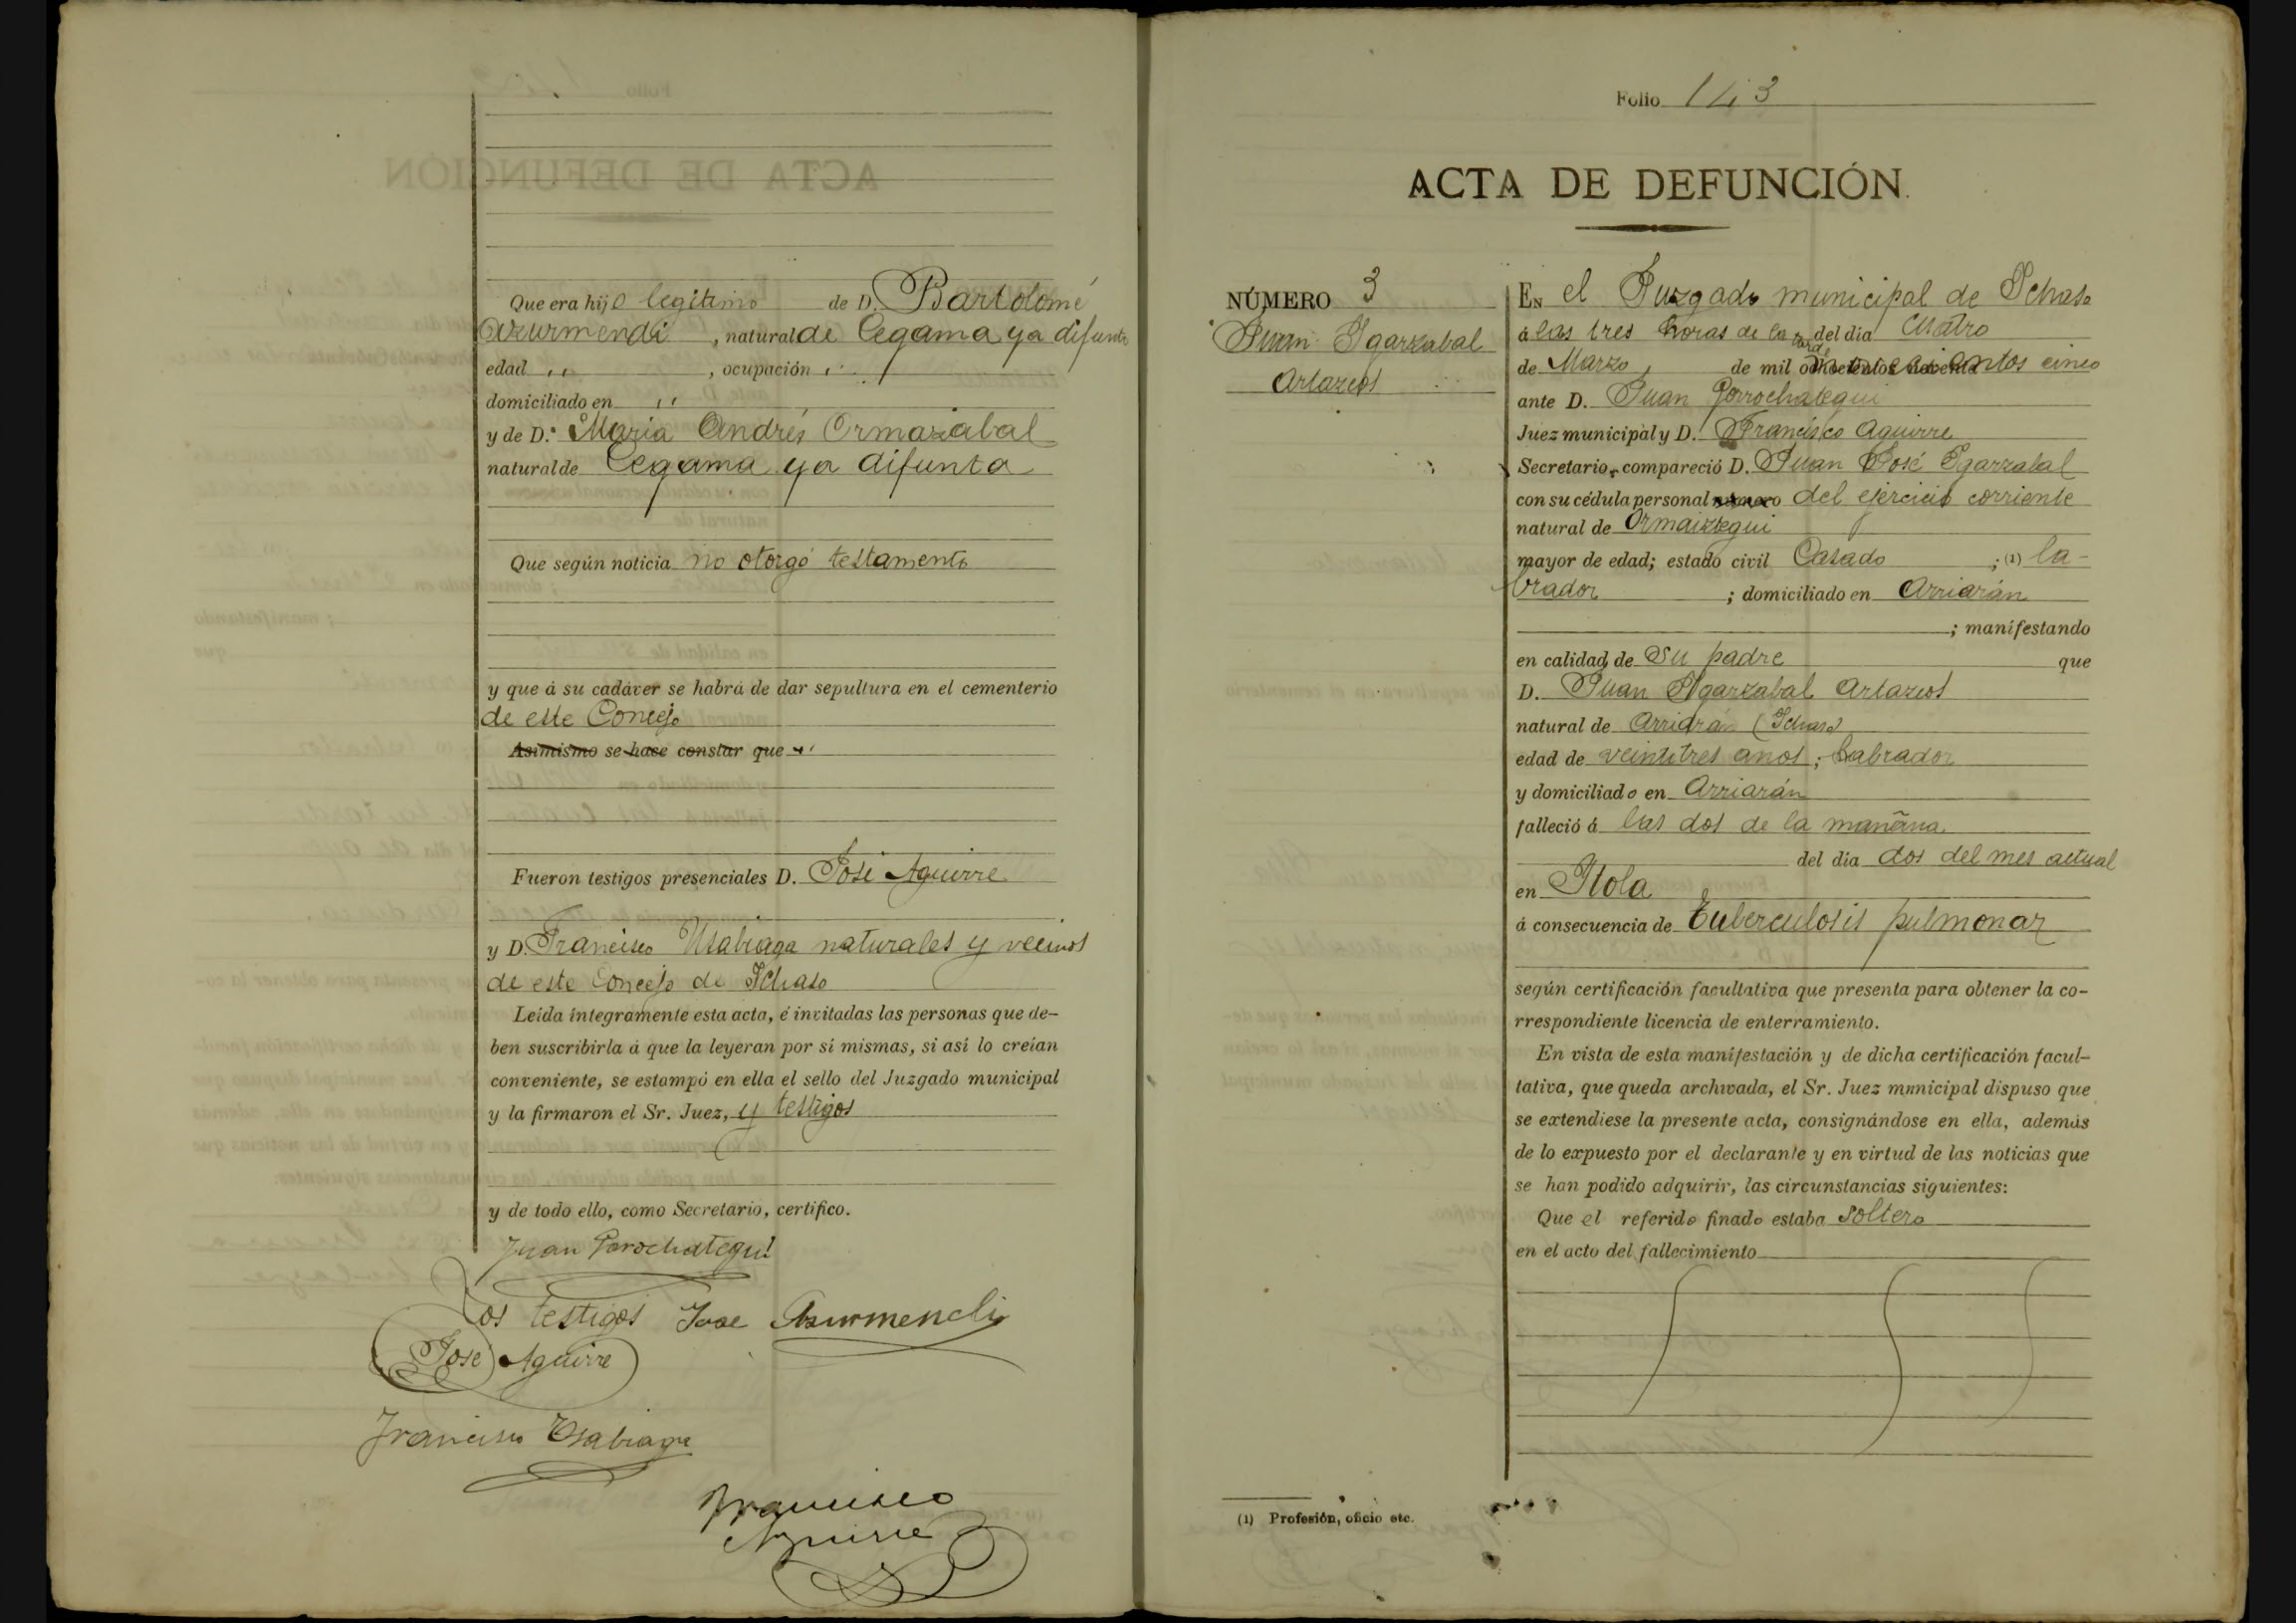 Que era hijo legitimo de D. Bartolomé
Azurmendi, natural de Cegama ya difunto
edad ,, , ocupación ,,
domiciliado en ,,
y de D.ª Maria Andrés Ormazabal
natural de Cegama ya difunta
Que según noticia no otorgó testamento
y que á su cadáver se habrá de dar sepultura en el cementerio
de este Concejo
Asimismo se hace constar que ,,
Fueron testigos presenciales D. José Aguirre
y D. Francisco Usabiaga naturales y vecinos
de este Concejo de Ichaso
Leída íntegramente esta acta, é invitadas las personas que de-
ben suscribirla á que la leyeran por sí mismas, si así lo creían
conveniente, se estampó en ella el sello del Juzgado municipal
y la firmaron el Sr. Juez, y testigos
y de todo ello, como Secretario, certifico.
Juan Gorrochategui
Los testigos Jose Azurmendi
José Aguirre
Francisco Usabiaga
Francisco
Aguirre
Folio 143
ACTA DE DEFUNCIÓN.
NÚMERO 3
Juan Igarzabal
Artazcos
En el Juzgado municipal de Ichaso
á las tres horas de la tarde del dia Cuatro
de Marzo, de mil novecientos cinco
ante D. Juan Gorrochategui
Juez municipal y D. Francisco Aguirre
Secretario, compareció D. Juan José Igarzabal
con su cédula personal número del ejercicio corriente
natural de Ormaiztegui
mayor de edad; estado civil Casado ; (1) la-
brador ; domiciliado en Arriarán
; manifestando
en calidad de su padre que
D. Juan Igarzabal Artazcos
natural de Arriarán (Ichaso)
edad de veintitres anos; Labrador
y domiciliado en Arriarán
falleció á las dos de la mañana
del dia dos del mes actual
en Itola
á consecuencia de tuberculosis pulmonar
según certificación facultativa que presenta para obtener la co-
rrespondiente licencia de enterramiento.
En vista de esta manifestación y de dicha certificación facul-
tativa, que queda archivada, el Sr. Juez municipal dispuso que
se extendiese la presente acta, consignándose en ella, además
de lo expuesto por el declarante y en virtud de las noticias que
se han podido adquirir, las circunstancias siguientes:
Que el referido finado estaba soltero
en el acto del fallecimiento
(1) Profesión, oficio etc.